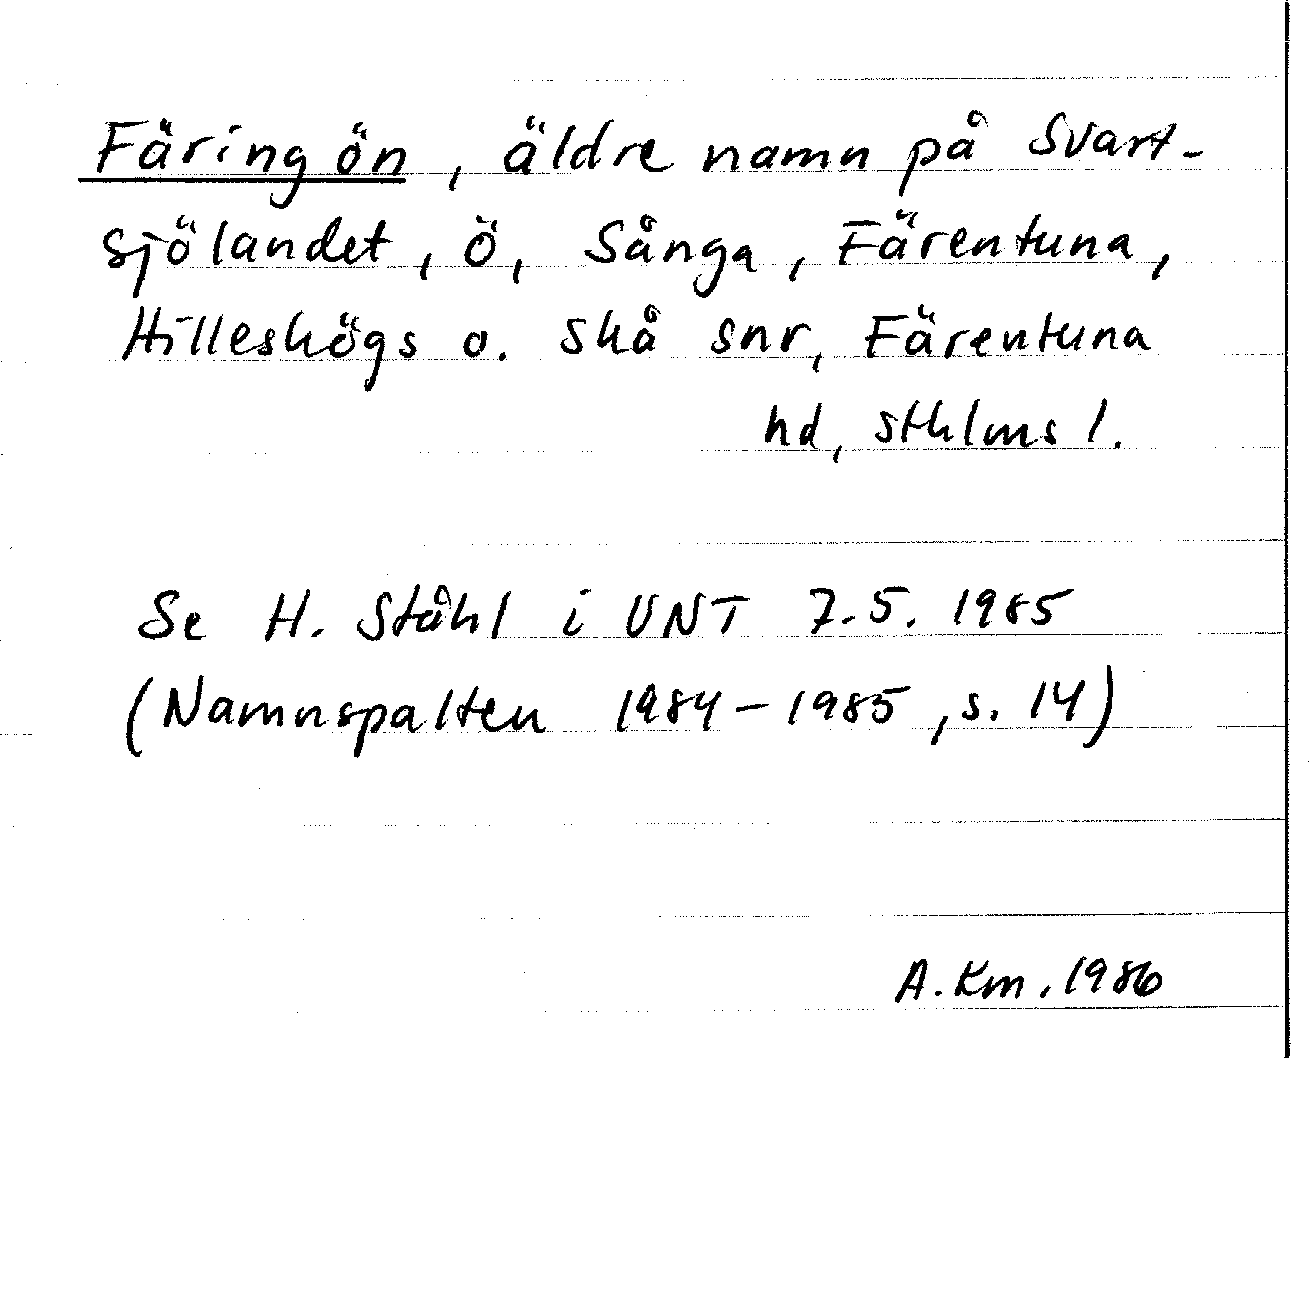 Färingön, äldre namn på Svart-
sjölandet, Ö, Sånga, Färentuna,
Hilleshögs o. Skå snr, Färentuna
hd, Sthlms l.
Se H. Ståhl i UNT 7.5.1985
(Namnspalten 1984-1985, s. 14)
A. Km. 1986